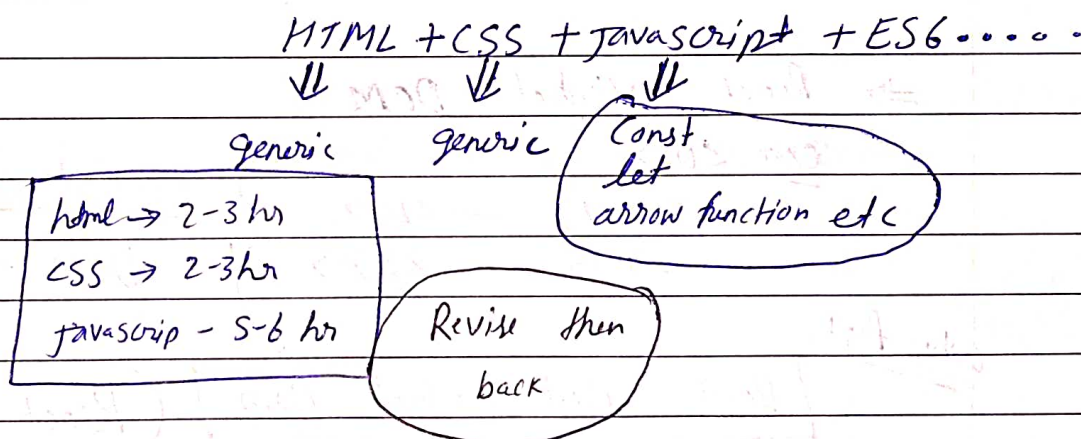 HTML + CSS + Javascript + ES6.....
⇓ ⇓ ⇓
generic generic Const.
let
arrow function etc
html → 2-3 hr
CSS → 2-3hr
Javascrip - 5-6 hr
Revise then
back